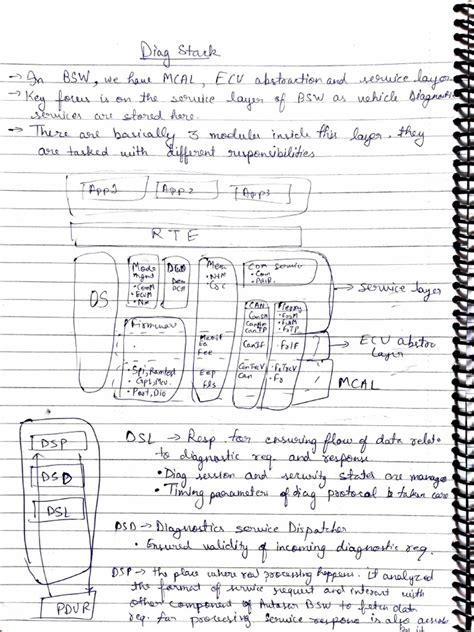 Diag Stack
→ In BSW, we have MCAL, ECU abstraction and service layer
→ Key focus is on the service layer of BSW as vehicle Diagnostic
services are stored here.
→ There are basically 3 modules inside this layer. they
are tasked with different responsibilities
App1 App2 App3
RTE
OS
Mode
mgmt
• ComM
• ECUM
• Nm
DGD
Dem
DCM
Mem
• NVM
• Crc
Com Service
• Com
• PDUR
→ service layer
CAN
CanSM
CanNm
CanTP
Flexray
• FrSM
• FrNM
• FrTP
Firmware
MemIf
Ea
Fee
CanIf
• FrIF
→ ECU abstrac
Layer
• Spi, Ramtst
• Gpt, Mcu
• Port, Dio
Eep
Fls
CanTrcv
Can
• FrTrcv
• Fr
MCAL
DSP
DSD
DSL
PDUR
DSL → Resp for ensuring flow of data relate
to diagnostic req. and response
• Diag session and security states are manage
• Timing parameters of diag protocol is taken care
DSD → Diagnostics service Dispatcher
• Ensured validity of incoming diagnostic req.
DSP → the place where real processing happens. it analyzed
the format of service request and interact with
other component of Autosar BSW to fetch data
req. for processing service response is also
by it